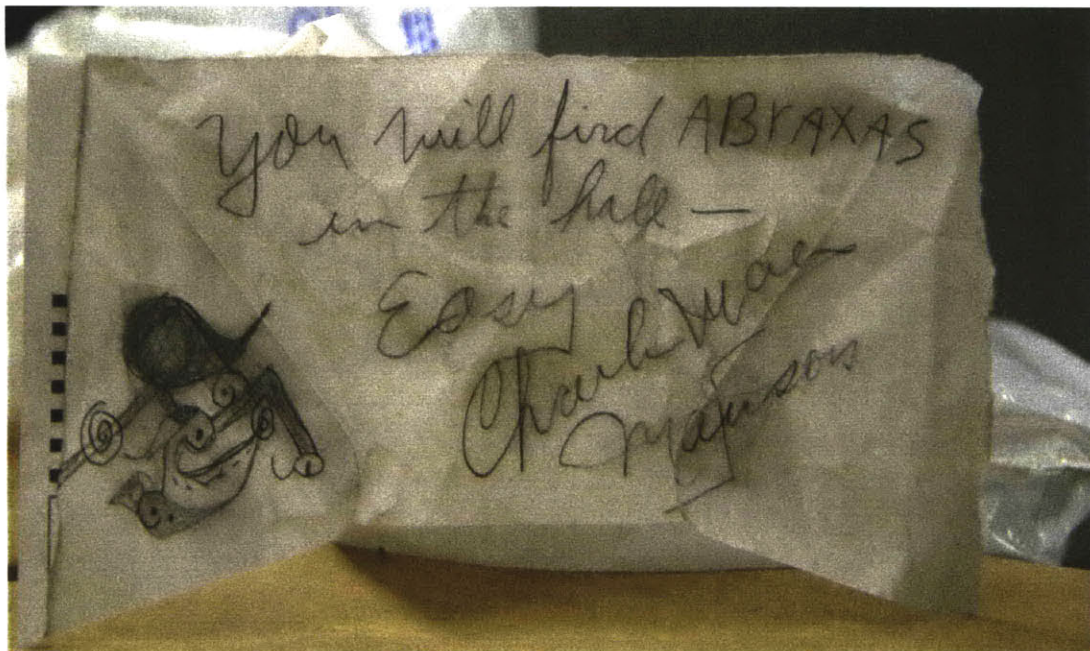 You will find ABrAXAS
in the hall —
Easy
Charles
Manson